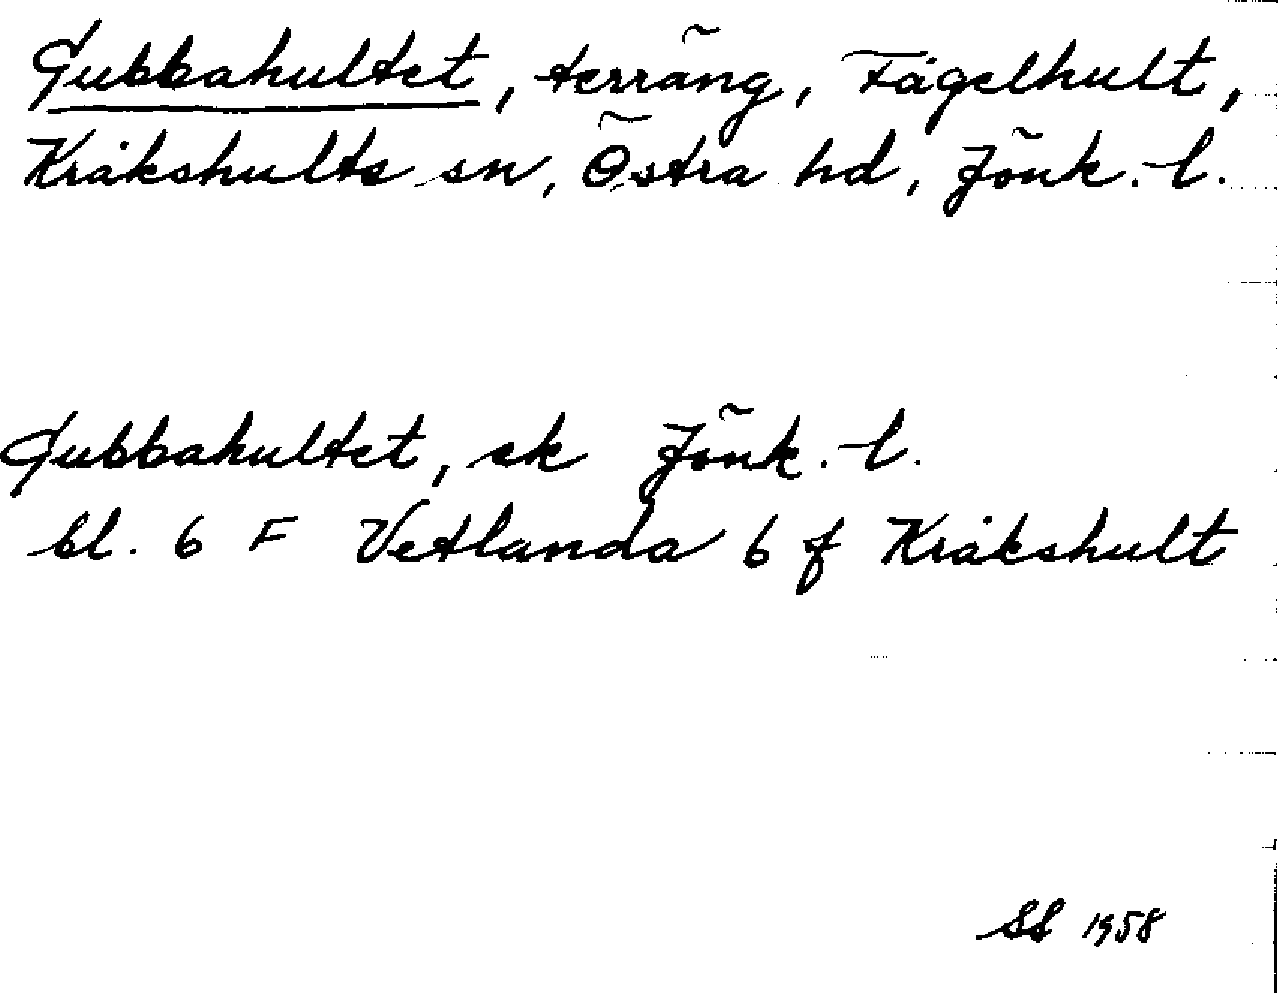 Gubbahultet, terräng, Fågelhult,
Kråkshults sn, Östra hd, Jönk. l.
Gubbahultet, ek Jönk. l.
bl. 6 F Vetlanda 6 f Kråkshult
SS 1958